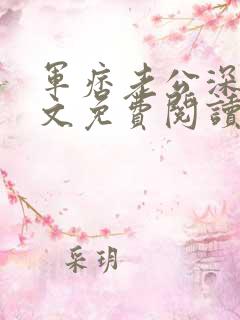 軍痞老公深
文免費閱讀
采玥